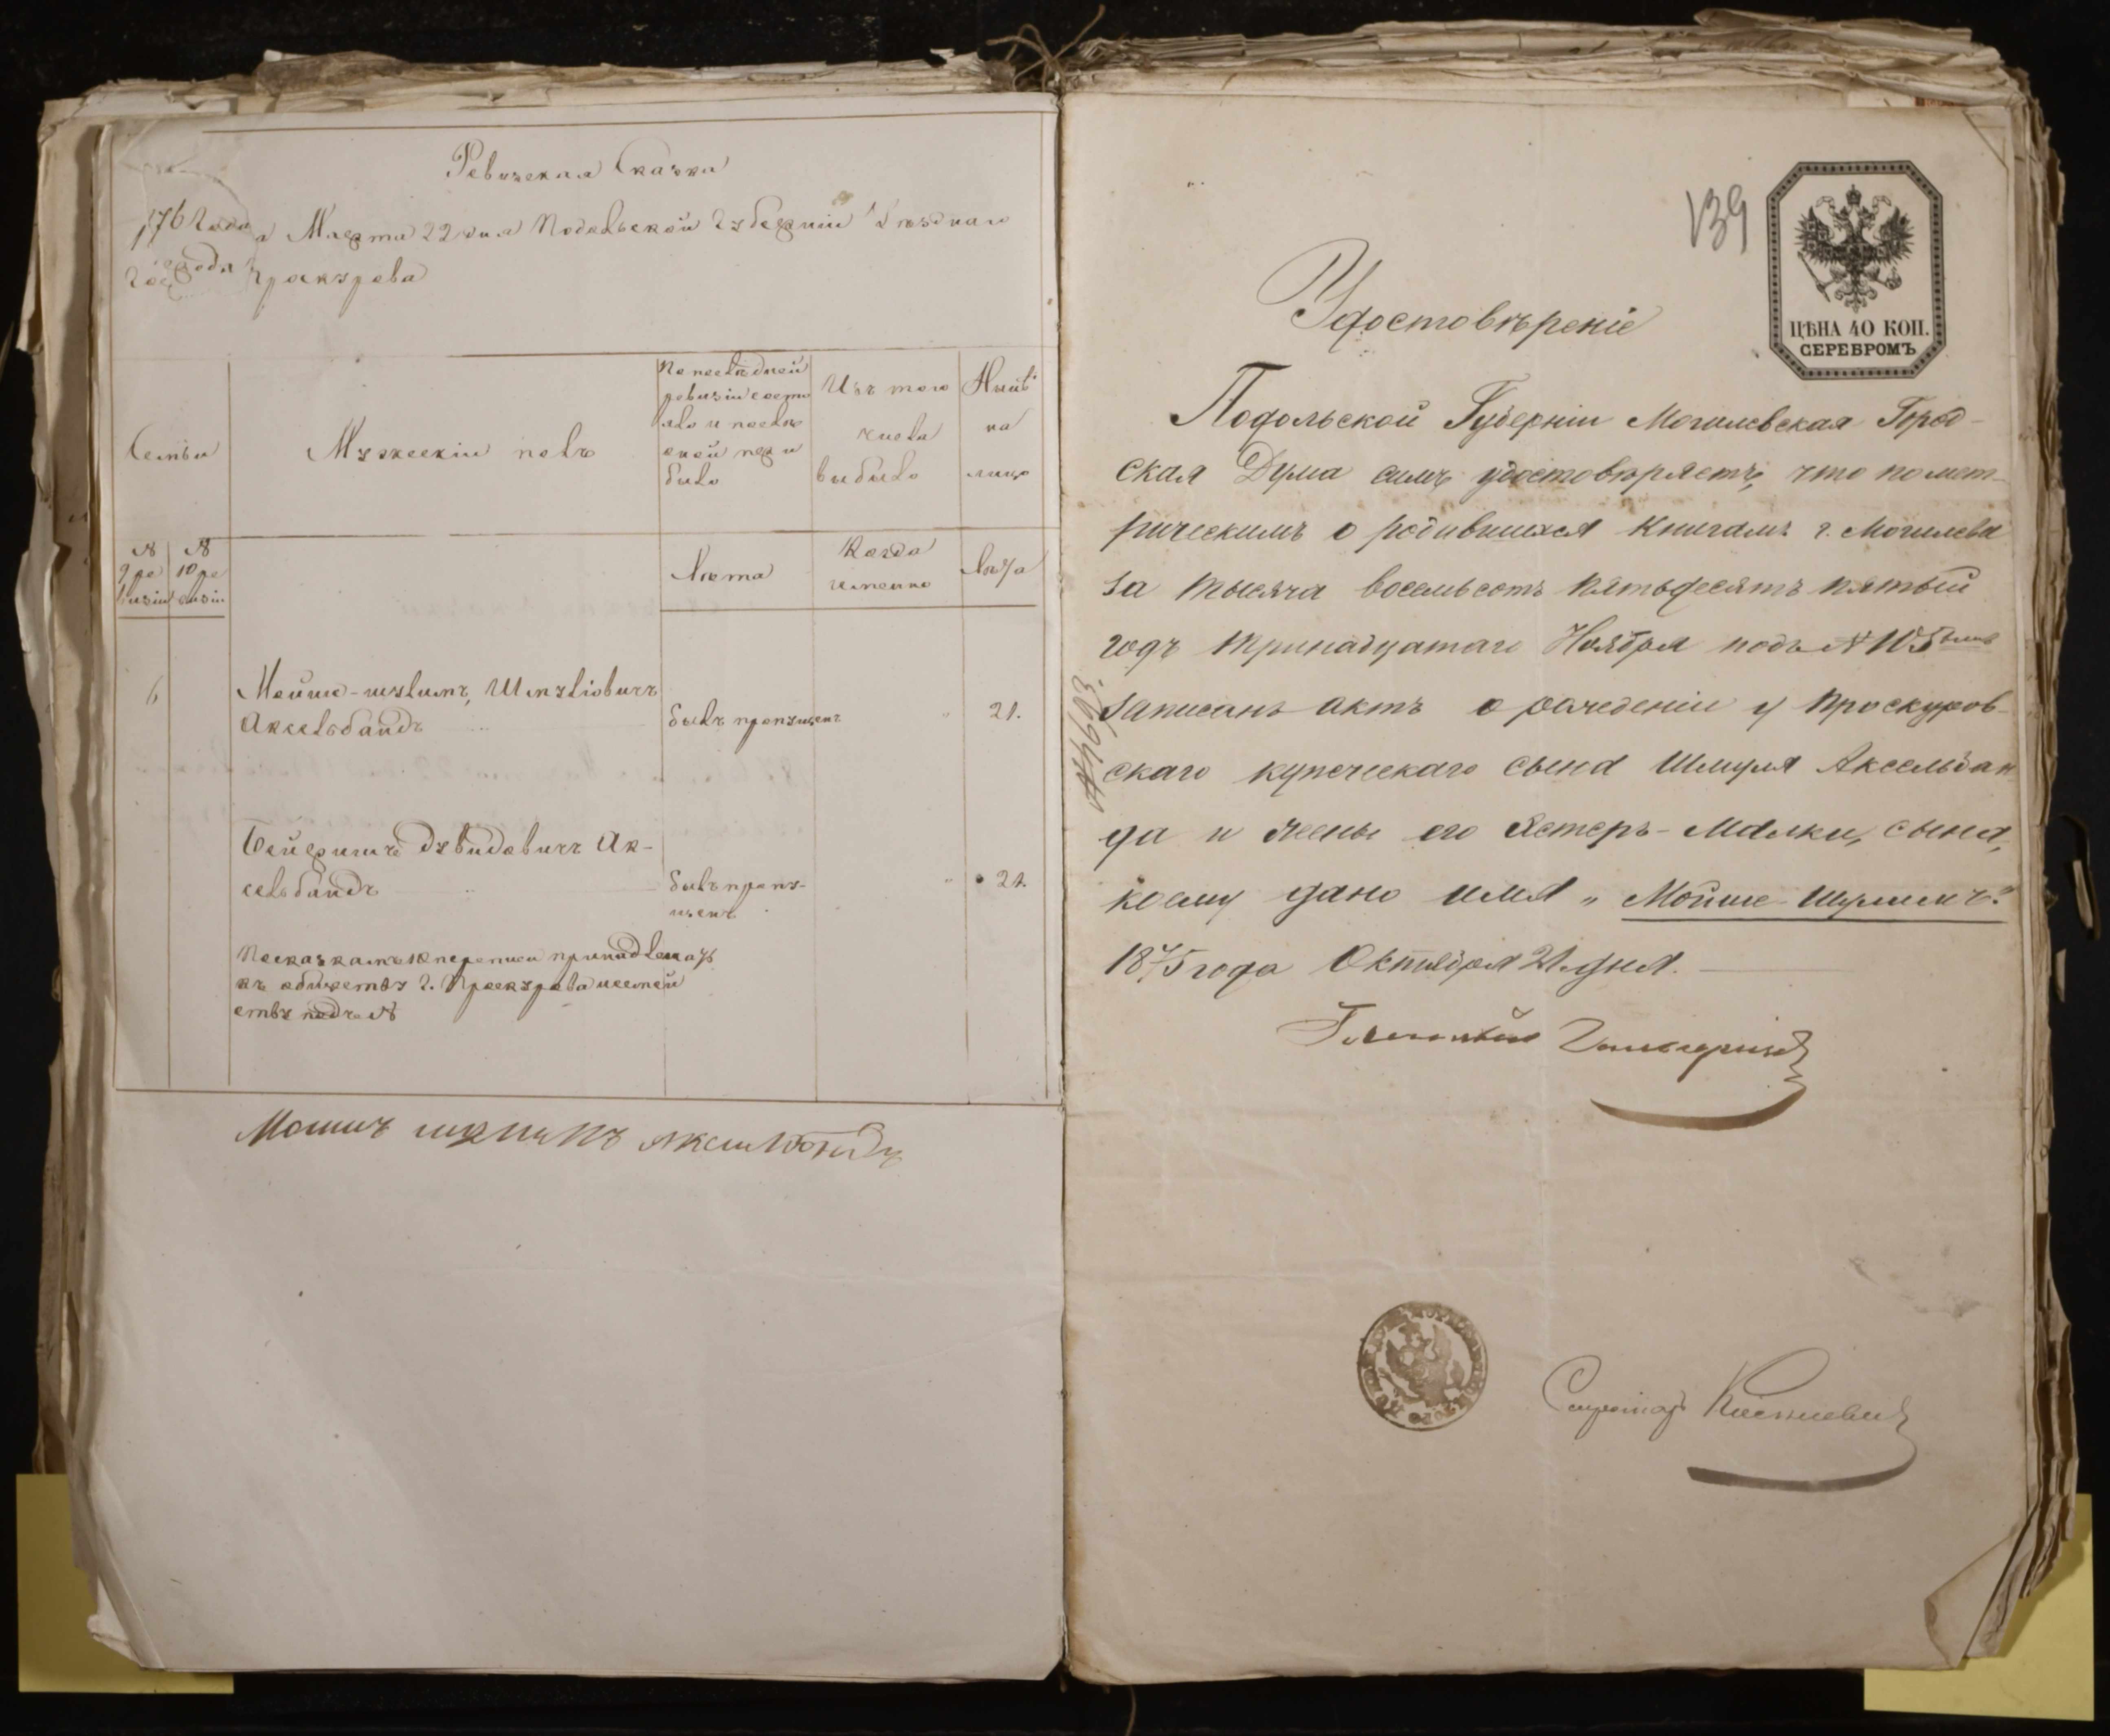 Ревизская Сказка
176 года Марта 22 дня Подольской Губерніи Уѣзднаго
города Проскурова
Семьи
Мужескій полъ
По послѣдней
ревизіи состо
яло и послѣ
оной при
было
Изъ того
числа
выбыло
Нынѣ
на
лицо
№
9 ре
визіи
№
10 ре
визіи
Лѣта
Когда
именно
Лѣта
6
Мойше-шулимъ, Шмуліовичъ
Аксельбандъ
былъ пропущенъ
21.
Дувидовичъ Ак-
сельбандъ
былъ пропу-
щенъ
21.
По сказкамъ 10 переписи принадлежатъ
къ обществу г. Проскурова
подъ №
Мошич шулимъ Аксельбандъ
139
ЦѢНА 40 КОП.
СЕРЕБРОМЪ
Удостовѣреніе
Подольской Губерніи Могилевская Город-
ская Дума симъ удостовѣряетъ, что по мет-
рическимъ о родившихся книгамъ г. Могилева
за тысяча восемьсотъ пятьдесятъ пятый
годъ тринадцатаго Ноября подъ № 105
записанъ актъ о рожденіи у Проскуров-
скаго купеческаго сына Шмуля Аксельбан-
да и жены его Эстеръ-Малки, сына,
коему дано имя „Мойше-Шулимъ".
1875 года Октября 21 дня.
№4693.
Секретарь